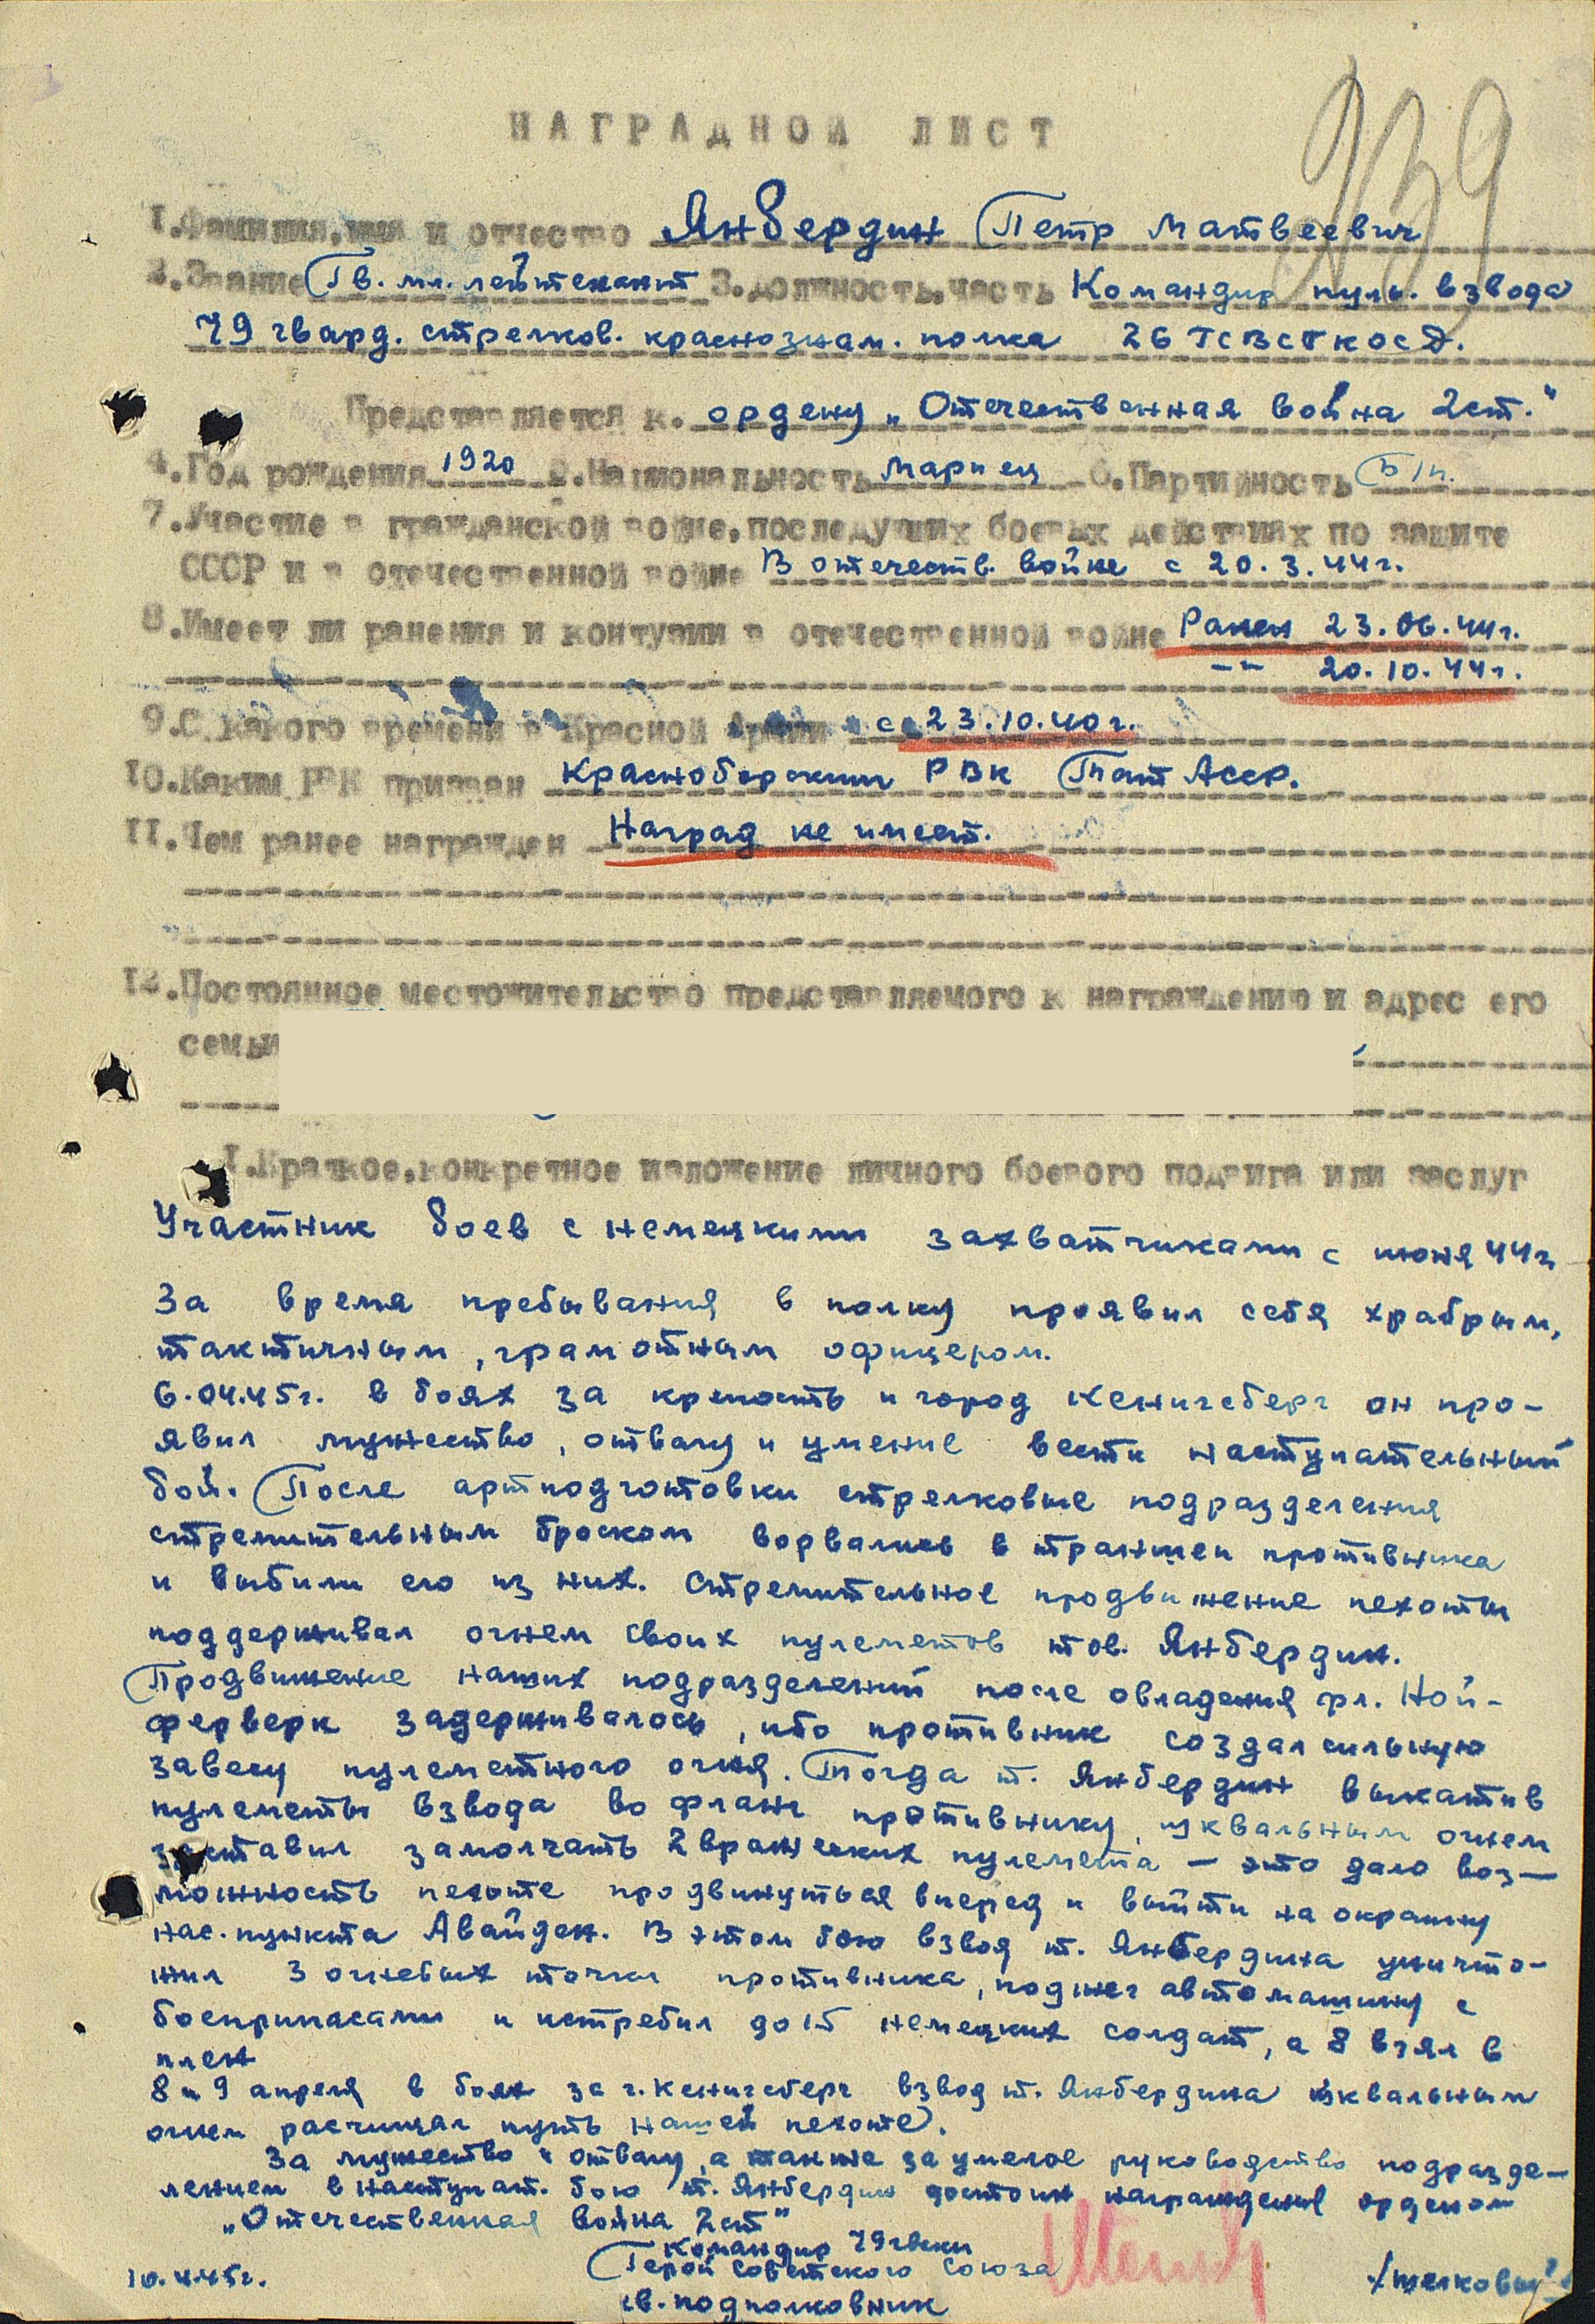 939
НАГРАДНОЙ ЛИСТ
1.Фамилия,имя и отчество Янбердин Петр Матвеевич
2.Звание Гв. мл. лейтенант 3.должность,часть Командир пуль. взвода
79 гвард. стрелков. краснознам. полка 26 ГСВСГКОСД.
Представляется к. ордену „Отечественная война 2ст."
4.Год рождения 1920 5.Национальность Мариец 6.Партийность Б/п.
7.Участие в гражданской войне,последующих боевых действиях по защите
СССР и в отечественной войне В отечеств. войне с 20.3.44г.
8.Имеет ли ранения и контузии в отечественной войне Ранен 23.06.44г.
-"- 20.10.44г.
9.С какого времени в Красной Армии с 23.10.40г.
10.Каким РВК призван Красноборским РВК Тат АССР.
11.Чем ранее награжден Наград не имеет.
12.Постоянное местожительство представляемого к награждению и адрес его
семьи
1.Краткое,конкретное изложение личного боевого подвига или заслуг
Участник боев с немецкими захватчиками с июня 44г
За время пребывания в полку проявил себя храбрым,
тактичным, грамотным офицером.
6.04.45г. в боях за крепость и город Кенигсберг он про-
явил мужество, отвагу и умение вести наступательный
бой. После артподготовки стрелковые подразделения
стремительным броском ворвались в траншеи противника
и выбили его из них. Стремительное продвижение пехоты
поддерживал огнем своих пулеметов тов. Янбердин.
Продвижение наших подразделений после овладения фл. Ной-
ферверк задерживалось, ибо противник создал сильную
завесу пулеметного огня. Тогда т. Янбердин выкатив
пулеметы взвода во фланг противнику, шквальным огнем
заставил замолчать 2 вражеских пулемета — это дало воз-
можность пехоте продвинуться вперед и выйти на окраину
нас. пункта Авайден. В этом бою взвод т. Янбердина уничто-
жил 3 огневых точки противника, поджег автомашину с
боеприпасами и истребил до 15 немецких солдат, а 8 взял в
плен
8 и 9 апреля в боях за г. Кенигсберг взвод т. Янбердина шквальным
огнем расчищал путь нашей пехоте.
За мужество и отвагу, а также за умелое руководство подразде-
лением в наступат. бою т. Янбердин достоин награждения орденом
„Отечественная война 2ст"
Командир 79 гвскп
Герой Советского Союза
10.4.45г.
гв. подполковник